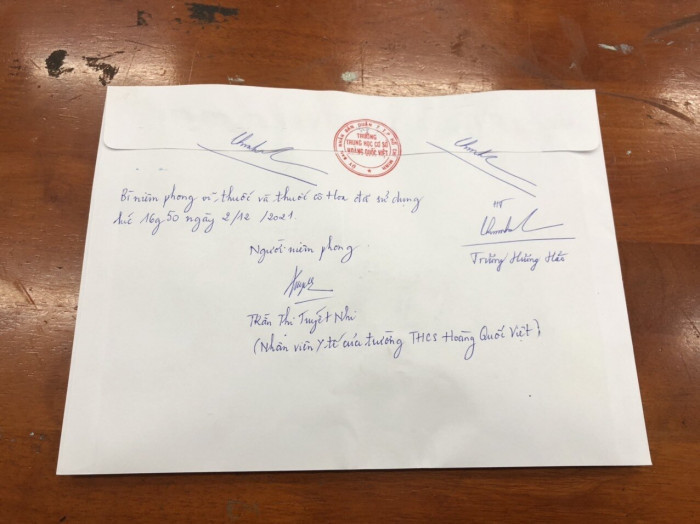 TRƯỜNG
TRUNG HỌC CƠ SỞ
HOÀNG QUỐC VIỆT
Bì niêm phong vỉ, thuốc và thuốc cô Hoa đã sử dụng
lúc 16g50 ngày 2/12/2021.
HT
Người niêm phong
Trương Hương Hảo
Trần Thị Tuyết Nhi
(Nhân viên Y tế của trường THCS Hoàng Quốc Việt)